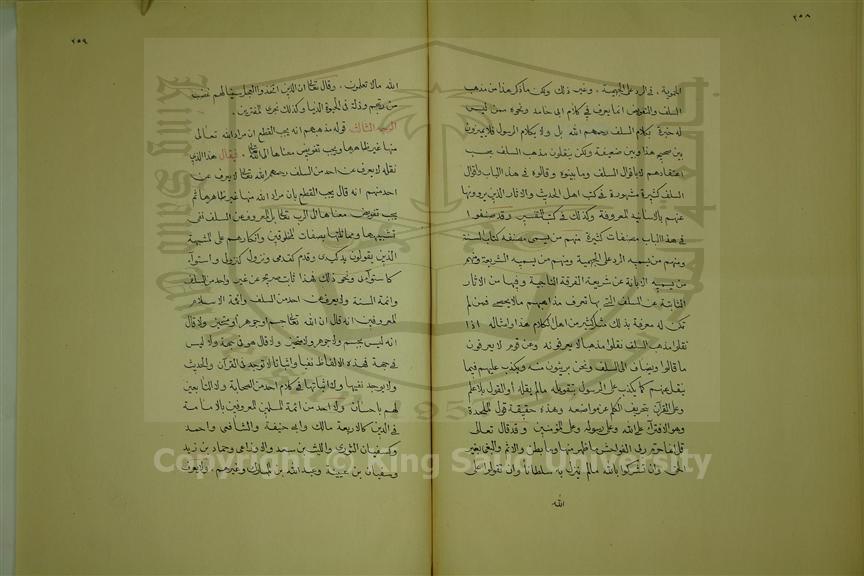 ٢٥٨
الحموية . في الرد على الجهمية . وغير ذلك ولكن ما ذكر هذا من مذهب
السلف والتفويض انما يعرف في كلام ابي حامد ونحوه ممن ليس
له خبرة بكلام السلف رحمهم الله بل ولا بكلام الرسول فلا يميزون
بين صحيح هذا وبين ضعيفه ولكن ينقلون مذهب السلف بحسب
اعتقادهم لا باقوال السلف وما بينوه وقالوه في هذا الباب واقوال
السلف كثيرة مشهورة في كتب اهل الحديث والاثار الذين يروونها
عنهم بالاسانيد المعروفة وكذلك في كتب التفسير وقد صنفوا
في هذا الباب مصنفات كثيرة منهم من يسمي مصنفه كتاب السنة
ومنهم من يسميه الرد على الجهمية ومنهم من يسميه الشريعة ومنهم
من يسميه الابانة عن شريعة الفرقة الناجية وفيها من الاثار
الثابتة عن السلف التي بها تعرف مذاهبهم ما لا يحصى فمن لم
تكن له معرفة بذلك مثل كثير من اهل الكلام هذا وامثاله اذا
نقلوا مذهب السلف نقلوا مذهبا لا يعرفونه وعن قوم لا يعرفون
ما قالوا ويضاف الى السلف ونحن بريئون منه ويكذب عليهم فيما
ينقل عنهم كما يكذب على الرسول بتقويله ما لم يقله أو القول بلا علم
وعلى القرآن بتحريف الكلم عن مواضعه وهذه حقيقة قول الملحدة
وهو الافتراء على الله وعلى رسوله وعلى المؤمنين وقد قال تعالى
قل انما حرم ربي الفواحش ما ظهر منها وما بطن والاثم والبغي بغير
الحق وان تشركوا بالله مالم ينزل به سلطانا وان تقولوا على
الله
٢٥٩
الله مالا تعلمون . وقال تعالى ان الذين اتخذوا العجل سينالهم غضب
من ربهم وذلة في الحيوة الدنيا وكذلك نجزي المفترين .
الوجه الثالث قوله مذهبهم انه يجب القطع ان مراد الله تعالى
منها غير ظاهرها ويجب تفويض معناها الى الله تعالى . فيقال هذا الذي
نقله لا يعرف عن احد من السلف رحمهم الله تعالى لا يعرف عن
احد منهم انه قال يجب القطع بان مراد الله منها غير ظاهرها ثم
يجب تفويض معناها الى الرب تعالى بل المعروف عن السلف نفي
تشبيهها ومماثلتها بصفات المخلوقين وانكارهم على المشبهة
الذين يقولون يد كيدي وقدم كقدمي ونزول كنزولي واستواء
كاستوائي ونحو ذلك فهذا ثابت صريح عن غير واحد من السلف
وائمة السنة ولا يعرف عن احد من السلف وائمة الاسلام
المعروفين انه قال ان الله تعالى جسم او جوهر أو متحيز ولا قال
انه ليس بجسم ولا جوهر ولا متحيز ولا قال هو في جهة ولا ليس
في جهة فهذه الالفاظ نفيا واثباتا لا توجد في القرآن والحديث
ولا يوجد نفيها ولا اثباتها في كلام احد من الصحابة ولا التابعين
لهم باحسان ولا احد من ائمة المسلمين المعروفين بالامامة
في الدين كالاربعة مالك وابي حنيفة والشافعي واحمد
وكسفيان الثوري والليث بن سعد والاوزاعي وحماد بن زيد
وسفيان بن عيينة وعبد الله بن المبارك وغيرهم
Copyright © King Saud University
King Saud University
1957